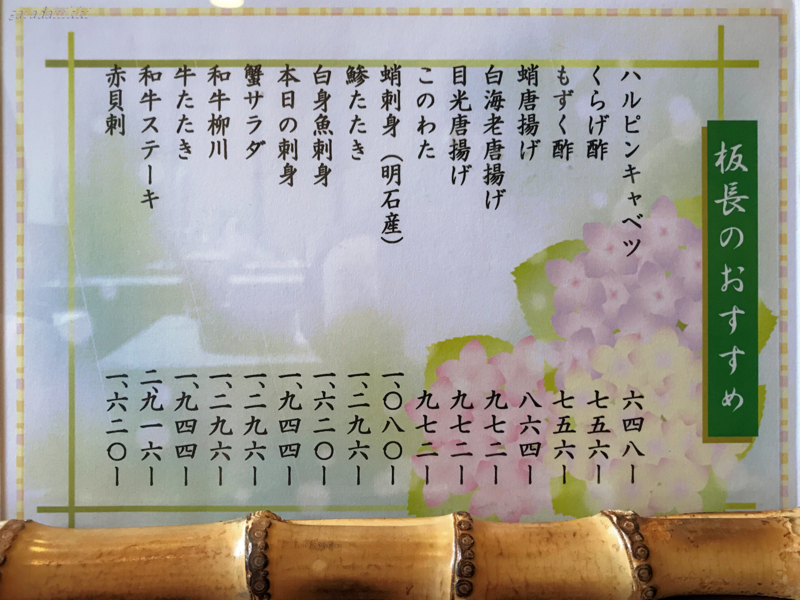 板長のおすすめ
ハルピンキャベツ 六四八ー
くらげ酢 七五六ー
もずく酢 七五六ー
蛸唐揚げ 八六四ー
白海老唐揚げ 九七二ー
目光唐揚げ 九七二ー
このわた 九七二ー
蛸刺身（明石産） 一、〇八〇ー
鯵たたき 一、二九六ー
白身魚刺身 一、六二〇ー
本日の刺身 一、九四四ー
蟹サラダ 一、二九六ー
和牛柳川 一、二九六ー
牛たたき 一、九四四ー
和牛ステーキ 二、九一六ー
赤貝刺 一、六二〇ー